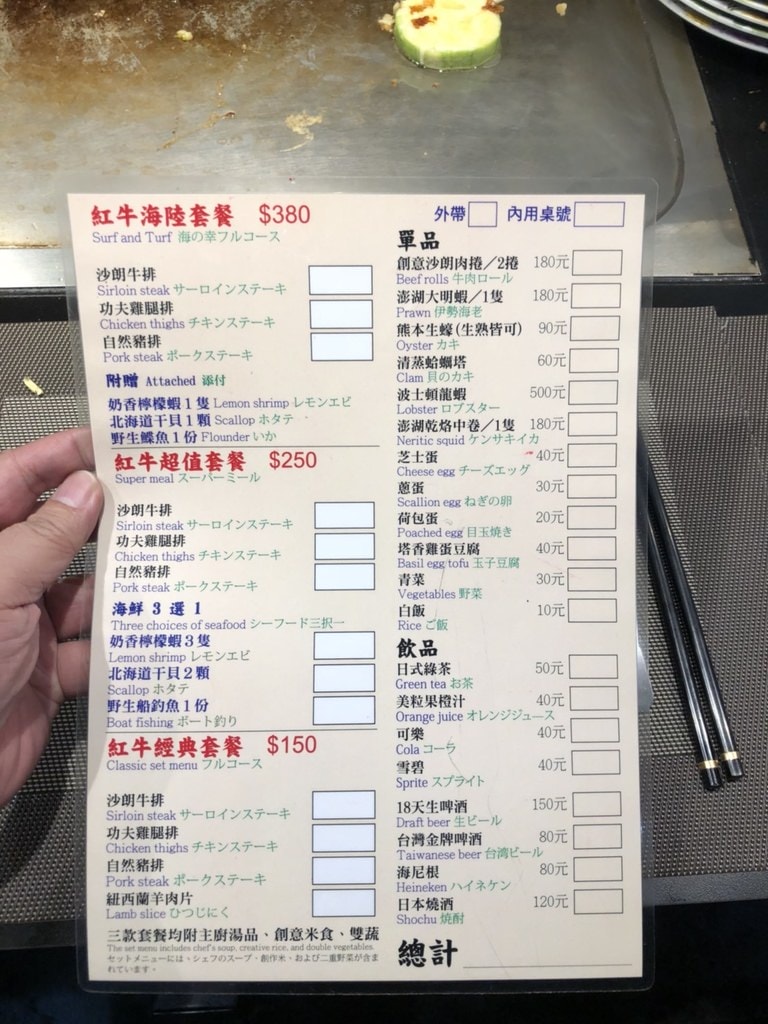 紅牛海陸套餐 $380
Surf and Turf 海の幸フルコース
沙朗牛排
Sirloin steak サーロインステーキ
功夫雞腿排
Chicken thighs チキンステーキ
自然豬排
Pork steak ポークステーキ
附贈 Attached 添付
奶香檸檬蝦1隻 Lemon shrimp レモンエビ
北海道干貝1顆 Scallop ホタテ
野生鰈魚1份 Flounder いか
紅牛超值套餐 $250
Super meal スーパーミール
沙朗牛排
Sirloin steak サーロインステーキ
功夫雞腿排
Chicken thighs チキンステーキ
自然豬排
Pork steak ポークステーキ
海鮮 3 選 1
Three choices of seafood シーフード三択一
奶香檸檬蝦3隻
Lemon shrimp レモンエビ
北海道干貝2顆
Scallop ホタテ
野生船釣魚1份
Boat fishing ボート釣り
紅牛經典套餐 $150
Classic set menu フルコース
沙朗牛排
Sirloin steak サーロインステーキ
功夫雞腿排
Chicken thighs チキンステーキ
自然豬排
Pork steak ポークステーキ
紐西蘭羊肉片
Lamb slice ひつじにく
三款套餐均附主廚湯品、創意米食、雙蔬
The set menu includes chef's soup, creative rice, and double vegetables.
セットメニューには、シェフのスープ、創作米、および二重野菜が含ま
れています。
外帶 內用桌號
單品
創意沙朗肉捲/2捲 180元
Beef rolls 牛肉ロール
澎湖大明蝦/1隻 180元
Prawn 伊勢海老
熊本生蠔(生熟皆可) 90元
Oyster カキ
清蒸蛤蠣塔 60元
Clam 貝のカキ
波士頓龍蝦 500元
Lobster ロブスター
澎湖乾烙中卷/1隻 180元
Neritic squid ケンサキイカ
芝士蛋 40元
Cheese egg チーズエッグ
蔥蛋 30元
Scallion egg ねぎの卵
荷包蛋 20元
Poached egg 目玉焼き
塔香雞蛋豆腐 40元
Basil egg tofu 玉子豆腐
青菜 30元
Vegetables 野菜
白飯 10元
Rice ご飯
飲品
日式綠茶 50元
Green tea お茶
美粒果橙汁 40元
Orange juice オレンジジュース
可樂 40元
Cola コーラ
雪碧 40元
Sprite スプライト
18天生啤酒 150元
Draft beer 生ビール
台灣金牌啤酒 80元
Taiwanese beer 台湾ビール
海尼根 80元
Heineken ハイネケン
日本燒酒 120元
Shochu 焼酎
總計